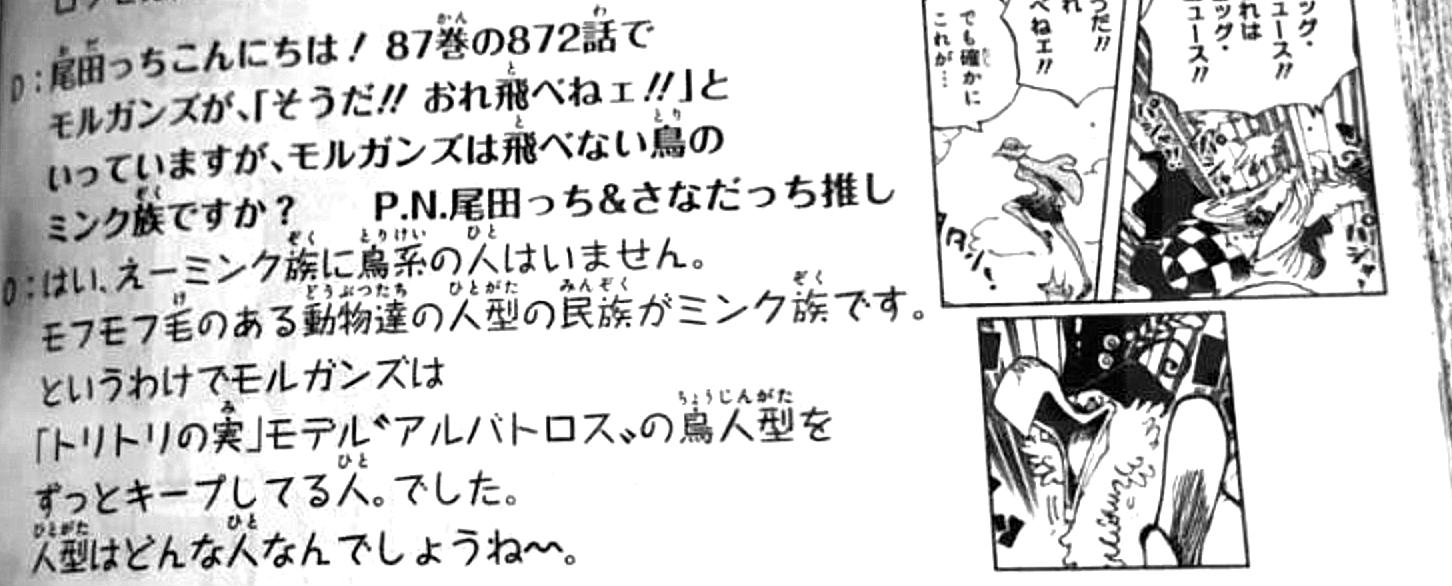 D：尾田っちこんにちは！ 87巻の872話で
モルガンズが、「そうだ!! おれ飛べねェ!!」と
いっていますが、モルガンズは飛べない鳥の
ミンク族ですか？ P.N.尾田っち&さなだっち推し
O：はい、えーミンク族に鳥系の人はいません。
モフモフ毛のある動物達の人型の民族がミンク族です。
というわけでモルガンズは
「トリトリの実」モデル〝アルバトロス〟の鳥人型を
ずっとキープしてる人。でした。
人型はどんな人なんでしょうね〜。
ッグ・
ュース!!
れは
ッグ・
ュース!!
うだ!!
れ
べねェ!!
でも確かに
これが…